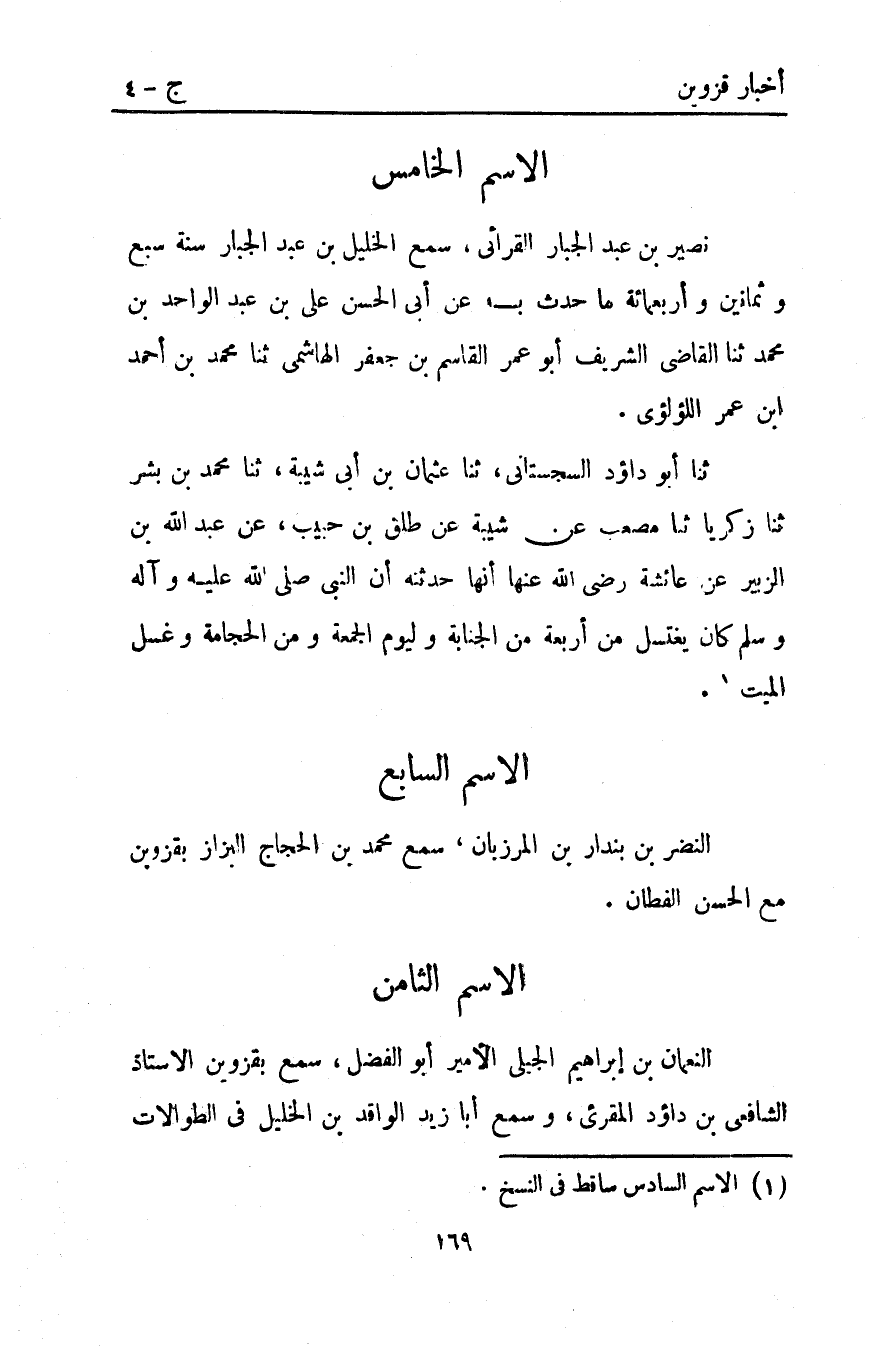 أخبار قزوين ج - ٤
الاسم الخامس
نصير بن عبد الجبار القرائى ، سمع الخليل بن عبد الجبار سنة سبع
و ثمانين و أربعمائة ما حدث بــه عن أبى الحسن على بن عبد الواحد بن
محمد ثنا القاضى الشريف أبو عمر القاسم بن جعفر الهاشمى ثنا محمد بن أحمد
ابن عمر اللؤلؤى .
ثنا أبو داؤد السجستانى، ثنا عثمان بن أبى شيبة ، ثنا محمد بن بشر
ثنا زكريا ثنا مصعب عن شيبة عن طلق بن حبيب، عن عبد الله بن
الزبير عن عائشة رضى الله عنها أنها حدثنه أن النبى صلى الله عليــه و آله
و سلم كان يغتسل من أربعة من الجنابة و ليوم الجمعة و من الحجامة و غسل
الميت ١ .
الاسم السابع
النضر بن بندار بن المرزبان ، سمع محمد بن الحجاج البزاز بقزوين
مع الحسن الفطان .
الاسم الثامن
النعمان بن إبراهيم الجيلى الأمير أبو الفضل ، سمع بقزوين الاستاذ
الشافعى بن داؤد المقرئ ، و سمع أبا زيد الواقد بن الخليل فى الطوالات
(١) الاسم السادس ساقط فى النسخ .
١٦٩